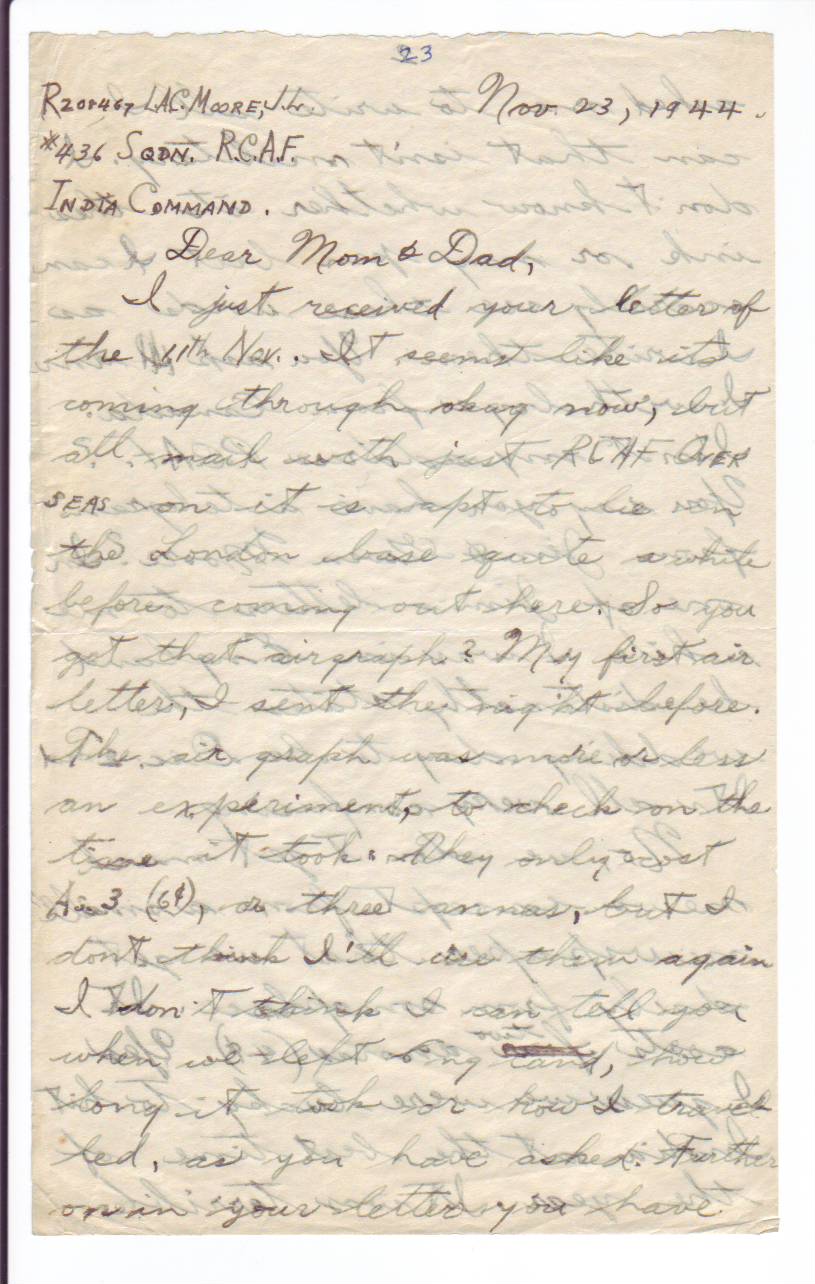 23
R208467 LAC. MOORE, J.L.
Nov 23, 1944.
#436 SQDN. R.C.A.F.
INDIA COMMAND.
Dear Mom & Dad,
I just received your letter of
the 11th Nov.. It seems like its
coming through okay now, but
mail with just RCAF OVER
SEAS on it is apt to lie in
the London base quite awhile
before coming out here. So you
got that airgraph? My first air
letter, I sent the night before.
The air graph was more or less
an experiment, to check on the
time it took. They only cost
As. 3 (6¢), or three annas, but I
dont think I'll use them again
I don't think I can tell you
when we left Eng land, how
long it took or how I travel
led, as you have asked. Further
on in your letter you have